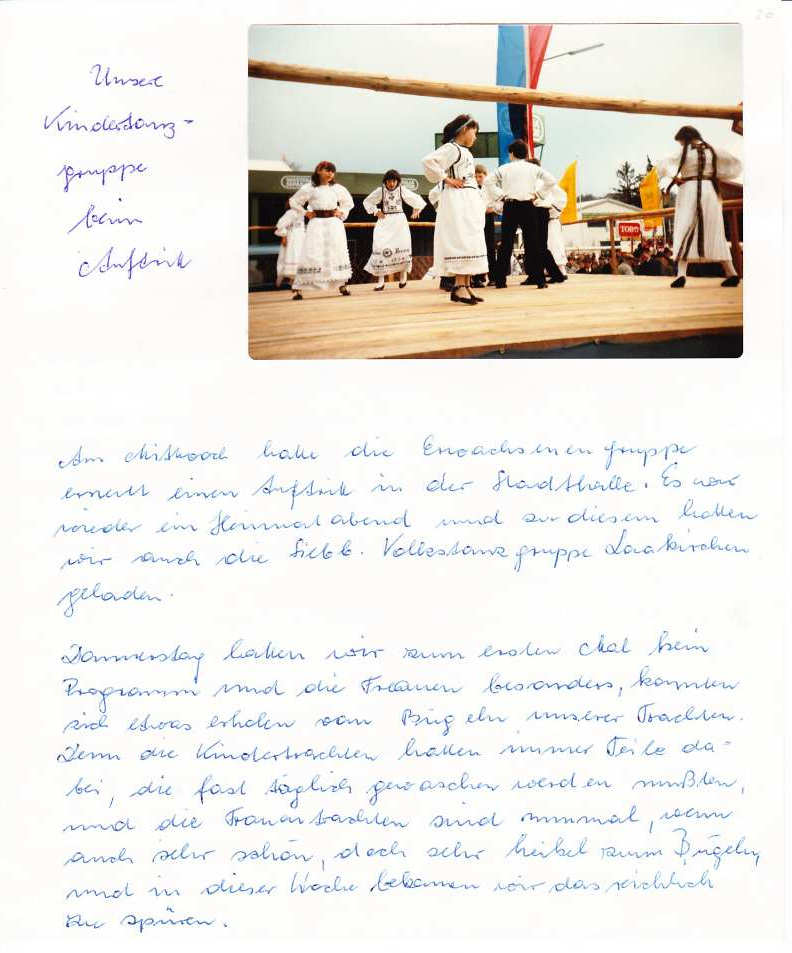 20
Unsere
Kindertanz-
gruppe
beim
Auftritt
TORO
Am Mittwoch hatte die Erwachsenengruppe
erneut einen Auftritt in der Stadthalle. Es war
wieder ein Heimatabend und zu diesem hatten
wir auch die Siebb. Volkstanzgruppe Laakirchen
geladen.
Donnerstag hatten wir zum ersten Mal kein
Programm und die Frauen besonders, konnten
sich etwas erholen vom Bügeln unserer Trachten.
Denn die Kindertrachten hatten immer Teile da-
bei, die fast täglich gewaschen werden mußten,
und die Frauentrachten sind nunmal, wenn
auch sehr schön, doch sehr heikel zum Bügeln,
und in dieser Woche bekamen wir das reichlich
zu spüren.